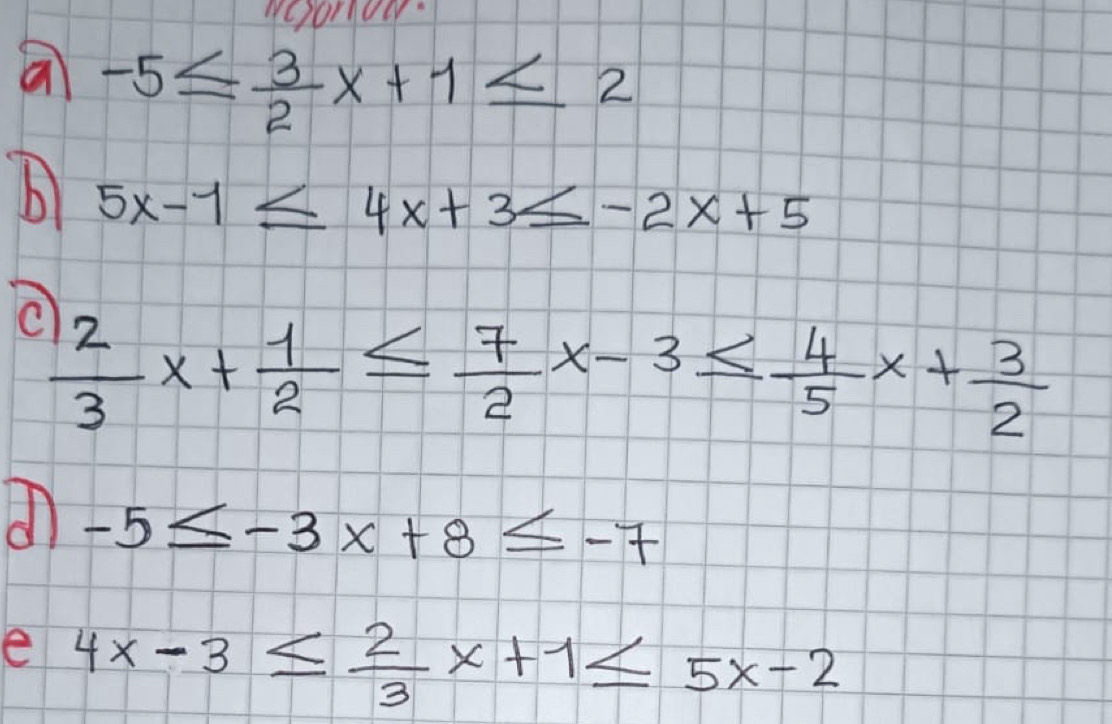 a) -5 ≤ 3/2 x + 1 ≤ 2
b) 5x - 1 ≤ 4x + 3 ≤ -2x + 5
c) 2/3 x + 1/2 ≤ 7/2 x - 3 ≤ 4/5 x + 3/2
d) -5 ≤ -3x + 8 ≤ -7
e 4x - 3 ≤ 2/3 x + 1 ≤ 5x - 2